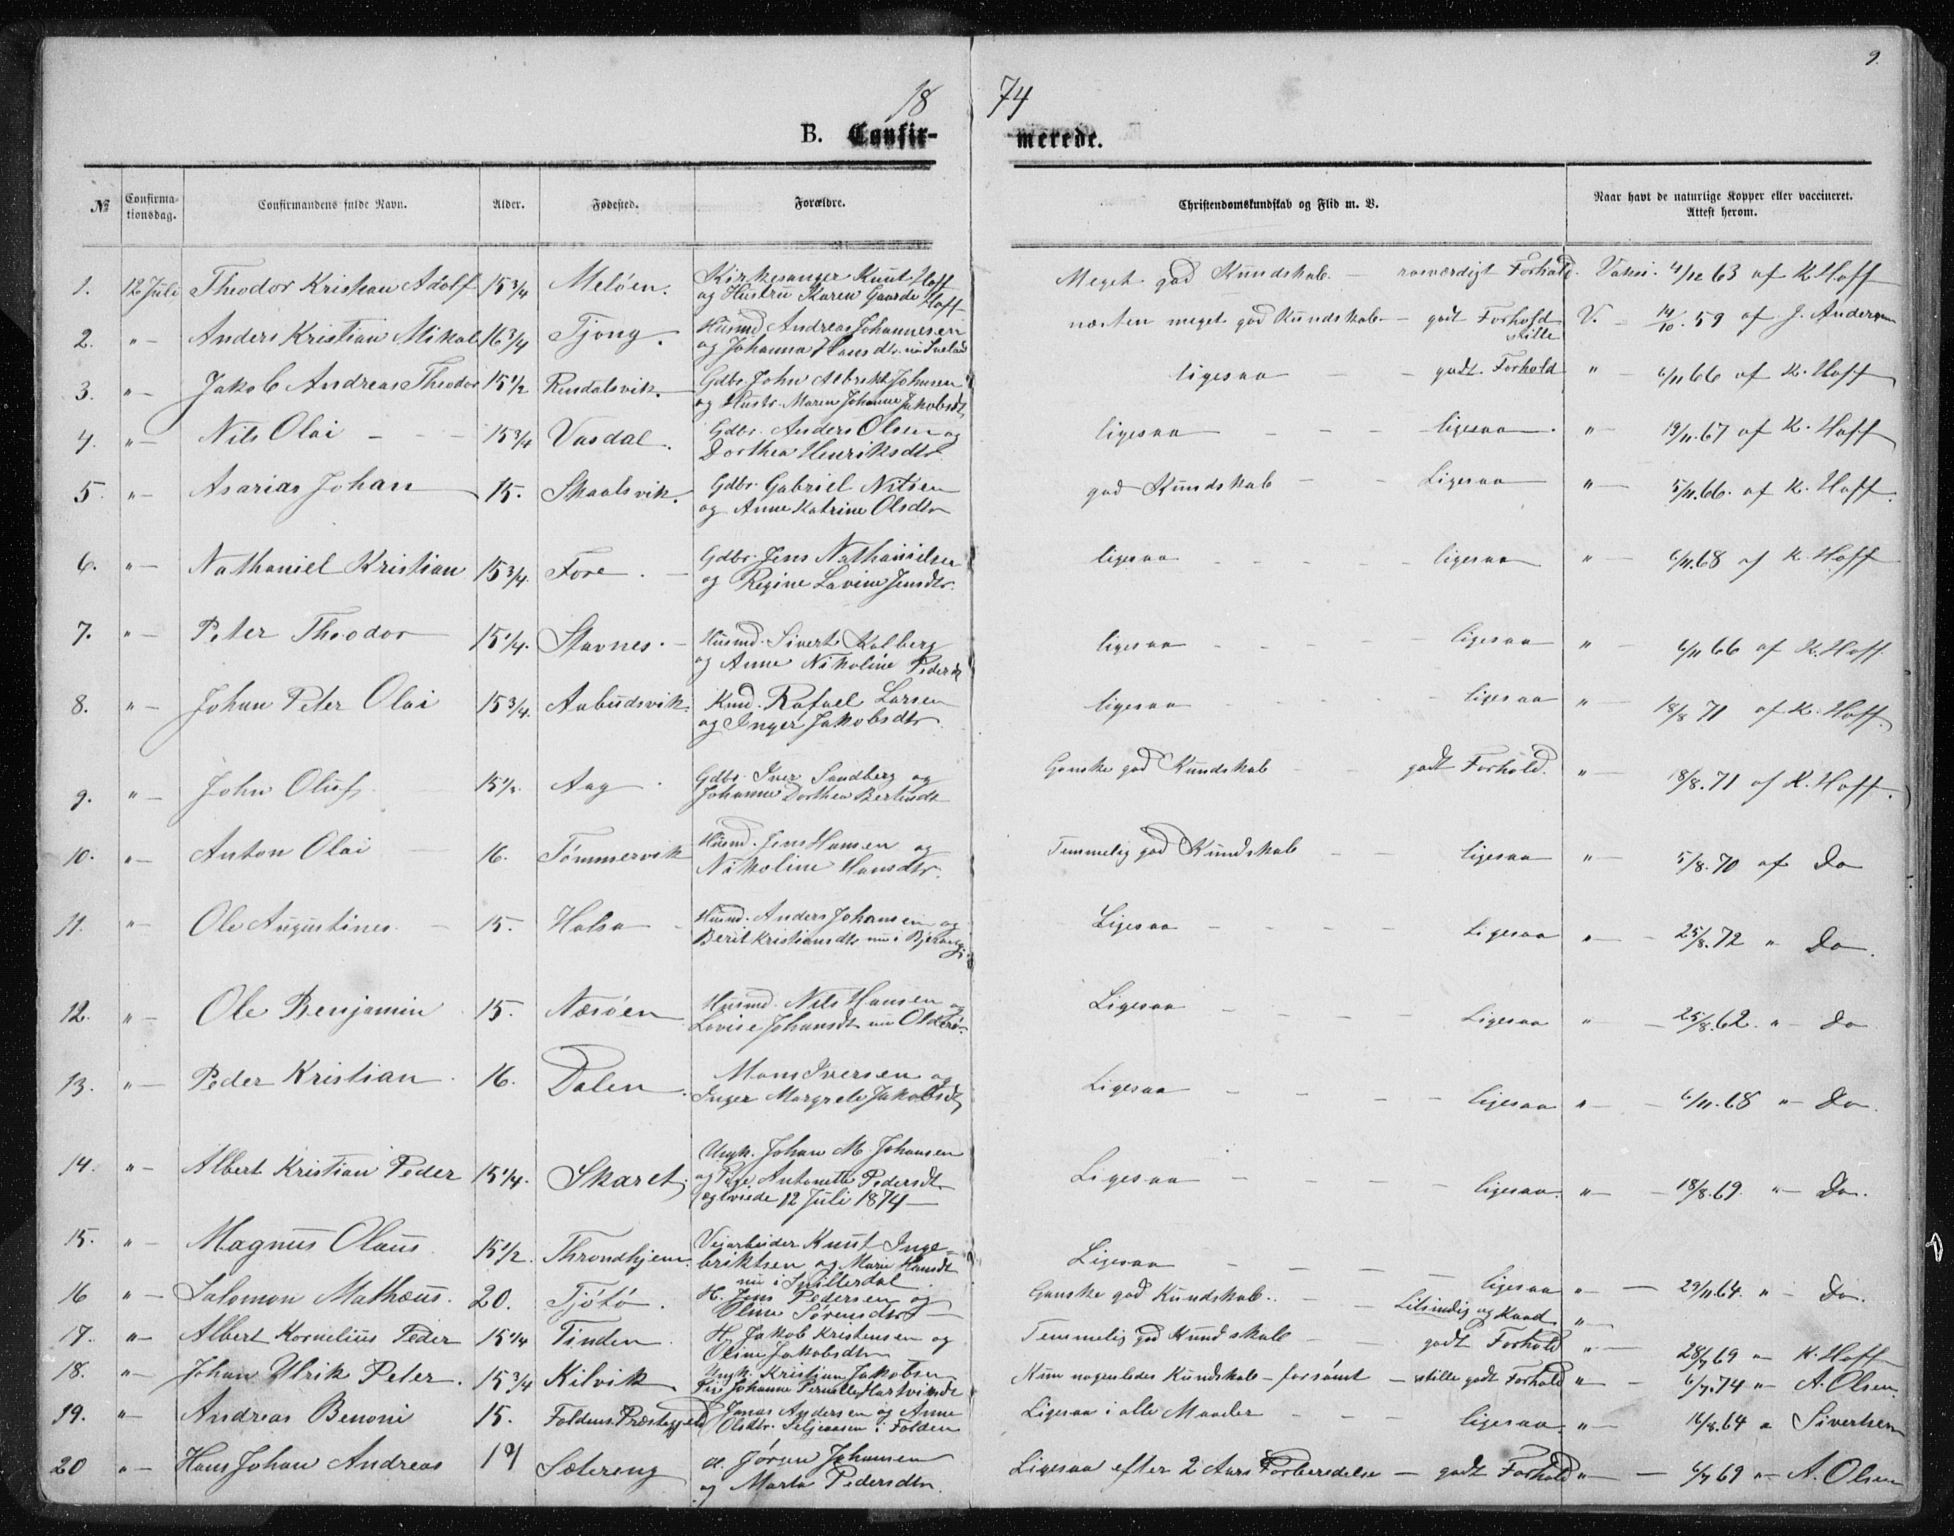 9.
18 74
B. Confir- merede.
№ Confirma-tionsdag. Confirmandens fulde Navn. Alder. Fødested. Forældre. Christendomskundskab og Flid m. V. Naar havt de naturlige Kopper eller vaccineret. Attest herom.
1. 12 Juli Theodor Kristian Adolf 15 3/4 Melöen. Kirkesanger Knut Hoff Meget god Kundskab. — rosværdigt Forhold. Vaksi. 4/12 63 af K. Hoff
og Hustru Karen Gaarde Hoff
2. " — Anders Kristian Mikal 16 3/4 Tjong. Husmd Andreas Johannesen næsten meget god Kundskab — godt Forhold V. — 14/10. 59 af J. Andersen
og Johanna Hansdtr. stille
3. " — Jakob Andreas Theodor 15 1/2 Rendalsvik. Gdbr. John Albrikt Johnsen ligesaa — — godt Forhold " — 6/11 66 af K. Hoff
og Hustr. Maren Johanne Jakobsdt
4. " — Nils Olai — — — 15 3/4 Vasdal. Gdbr. Anders Olsen og ligesaa — — — ligesaa — " — 19/11. 67 af K. Hoff
Dorthea Henriksdtr
5. " — Asarias Johan 15. Skaalsvik. Gdbr. Gabriel Nilsen god Kundskab — — Ligesaa " — 5/11. 66. af K. Hoff.
og Anne Katrine Olsdtr
6. " — Nathaniel Kristian 15 3/4. Fore. — Gdbr. Jens Nathanielsen ligesaa — — — ligesaa " — 6/11. 68 af K. Hoff
og Regine Lavine Jensdtr.
7. " — Peter Theodor 15 1/4. Stavnes. — Husmd. Sivert Kolberg ligesaa — — — ligesaa " — 6/11 66 af K. Hoff
og Anne Nikoline Pedersd
8. " — Johan Peter Olai 15 3/4. Aabudsvik. Husmd. Rafael Larsen ligesaa — — ligesaa " — 18/8 71 af K. Hoff
og Inger Jakobsdtr
9. " — John Oluf 15 1/2. Aag. Gdbr. Iver Sandberg og Ganske god Kundskab — godt Forhold. " — 18/8. 71 af K. Hoff.
Johanne Dorthea Bertesdt
10. " — Anton Olai — 16. Tömmervik Husmd. Jens Hansen og Temmelig god Kundskab — — ligesaa " — 5/8. 70 af Do
Nikoline Hansdtr.
11. " — Ole Augustines. — 15. Halsa — Husmd. Anders Johansen og Ligesaa — — — — Ligesaa " — — 25/8. 72 " Do
Berit Kristiansdtr nu i
12. " — Ole Benjamin 15. Næsöen Husmd. Nils Hansen og Ligesaa — — — — Ligesaa " — 25/8. 62. " — Do
Lovise Johansdt nu
13. " — Peder Kristian 16. Dalen. Mons Iversen og Ligesaa — — — — — ligesaa " — — 6/11. 68 " — Do.
Inger Margrete Jakobsdt
14. " — Albert Kristian Peder 15 1/4. Skaret. Ungk. Johan M. Johansen Ligesaa — — — — ligesaa. " — — 18/8. 69. " — Do.
og Pige Antonette Pedersdt
ægtviede 12 Juli 1874 —
15. " — Magnus Olaus 15 1/2. Throndhjem. Veiarbeider Knut Inge- Ligesaa — — — — ligesaa " — — 29/11. 64. " — Do.
briktsen og Marie Hansdt
nu i
16 " — Salomon Mathæus. 20. Tjötö. H. Jens Pedersen og Ganske god Kundskab. — — Letsindig og Kaad " —
Sörensdtr —
17. " — Albert Kornelius Peder 15 1/4 Tinden. H. Jakob Kristensen og Temmelig god Kundskab — — godt Forhold " — 28/9 69 " K. Hoff
Oline Jakobsdtr
18. " — Johan Ulrik Peter. 15 3/4 Kilvik Ungk. Kristian Jakobsen Kun nogenledes Kundskab — forsömt — stille godt Forhold " — 6/7. 74 " — A. Olsen.
Pi: Johanne Pernelle Hartviksdt
19. " Andreas Benoni 15. Foldens Præstegjeld Jonas Andersen og Anne Ligesaa i alle Maader — — ligesaa. " — 16/8. 64 " Sivertsen
Olsdtr. i Folden
20 " — Hans Johan Andreas 19 Sætereng Jörgen Johansen Ligesaa efter 2 Aars Forberedelse — godt Forhold " — — 6/7 69 " — A. Olsen
og Marta Pedersdtr.